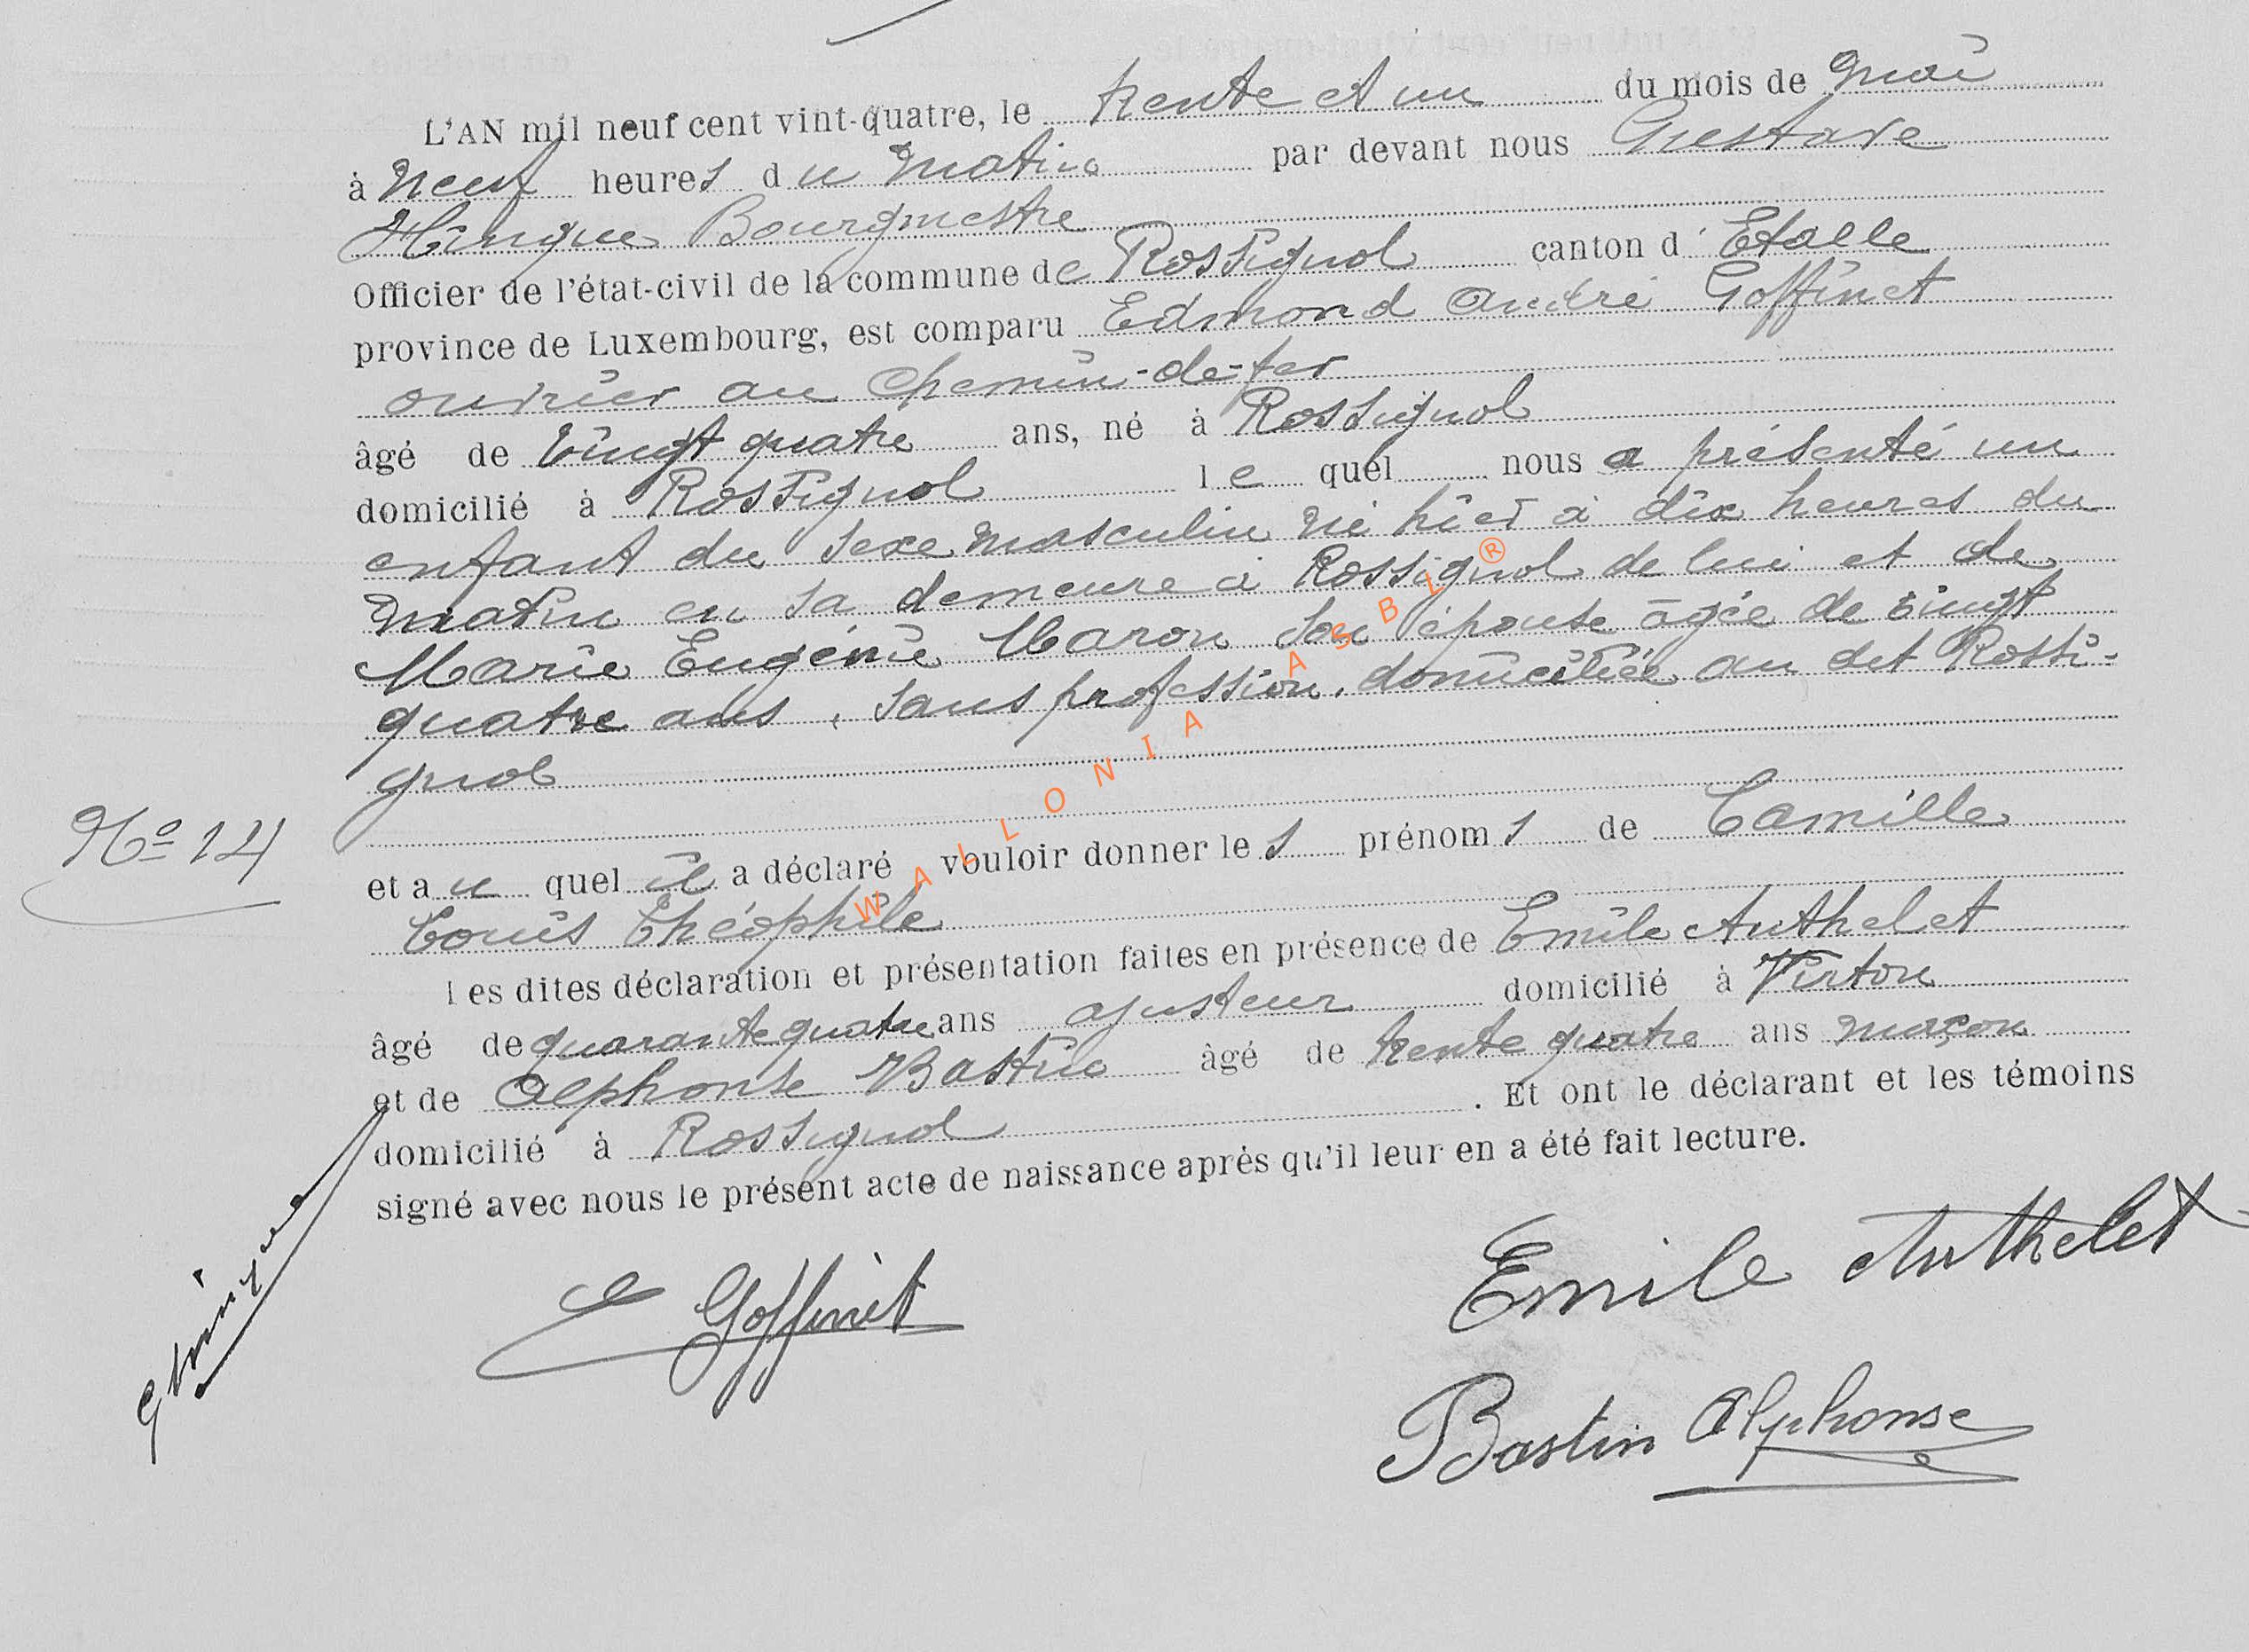 L'AN mil neuf cent vint-quatre, le trente et un du mois de mai
à neuf heures du matin par devant nous Gustave
Hinque Bourgmestre
Officier de l'état-civil de la commune de Rossignol canton d'Etalle
province de Luxembourg, est comparu Edmond André Goffinet
ouvrier au chemin-de-fer
âgé de vingt quatre ans, né à Rossignol
domicilié à Rossignol le quel nous a présenté un
enfant du sexe masculin né hier à dix heures du
matin en sa demeure à Rossignol de lui et de
Marie Eugénie Maron son épouse âgée de vingt
quatre ans, sans profession, domiciliée au dit Rossi-
gnol
No 14
et au quel il a déclaré vouloir donner les prénoms de Camille
Louis Théophile
les dites déclaration et présentation faites en présence de Emile Authelet
âgé de quarante quatre ans ajusteur domicilié à Virton
et de Alphonse Bastin âgé de trente quatre ans maçon
domicilié à Rossignol . Et ont le déclarant et les témoins
signé avec nous le présent acte de naissance après qu'il leur en a été fait lecture.
E Goffinet
Emile Authelet
Bastin Alphonse
WALLONIA ASBL ®